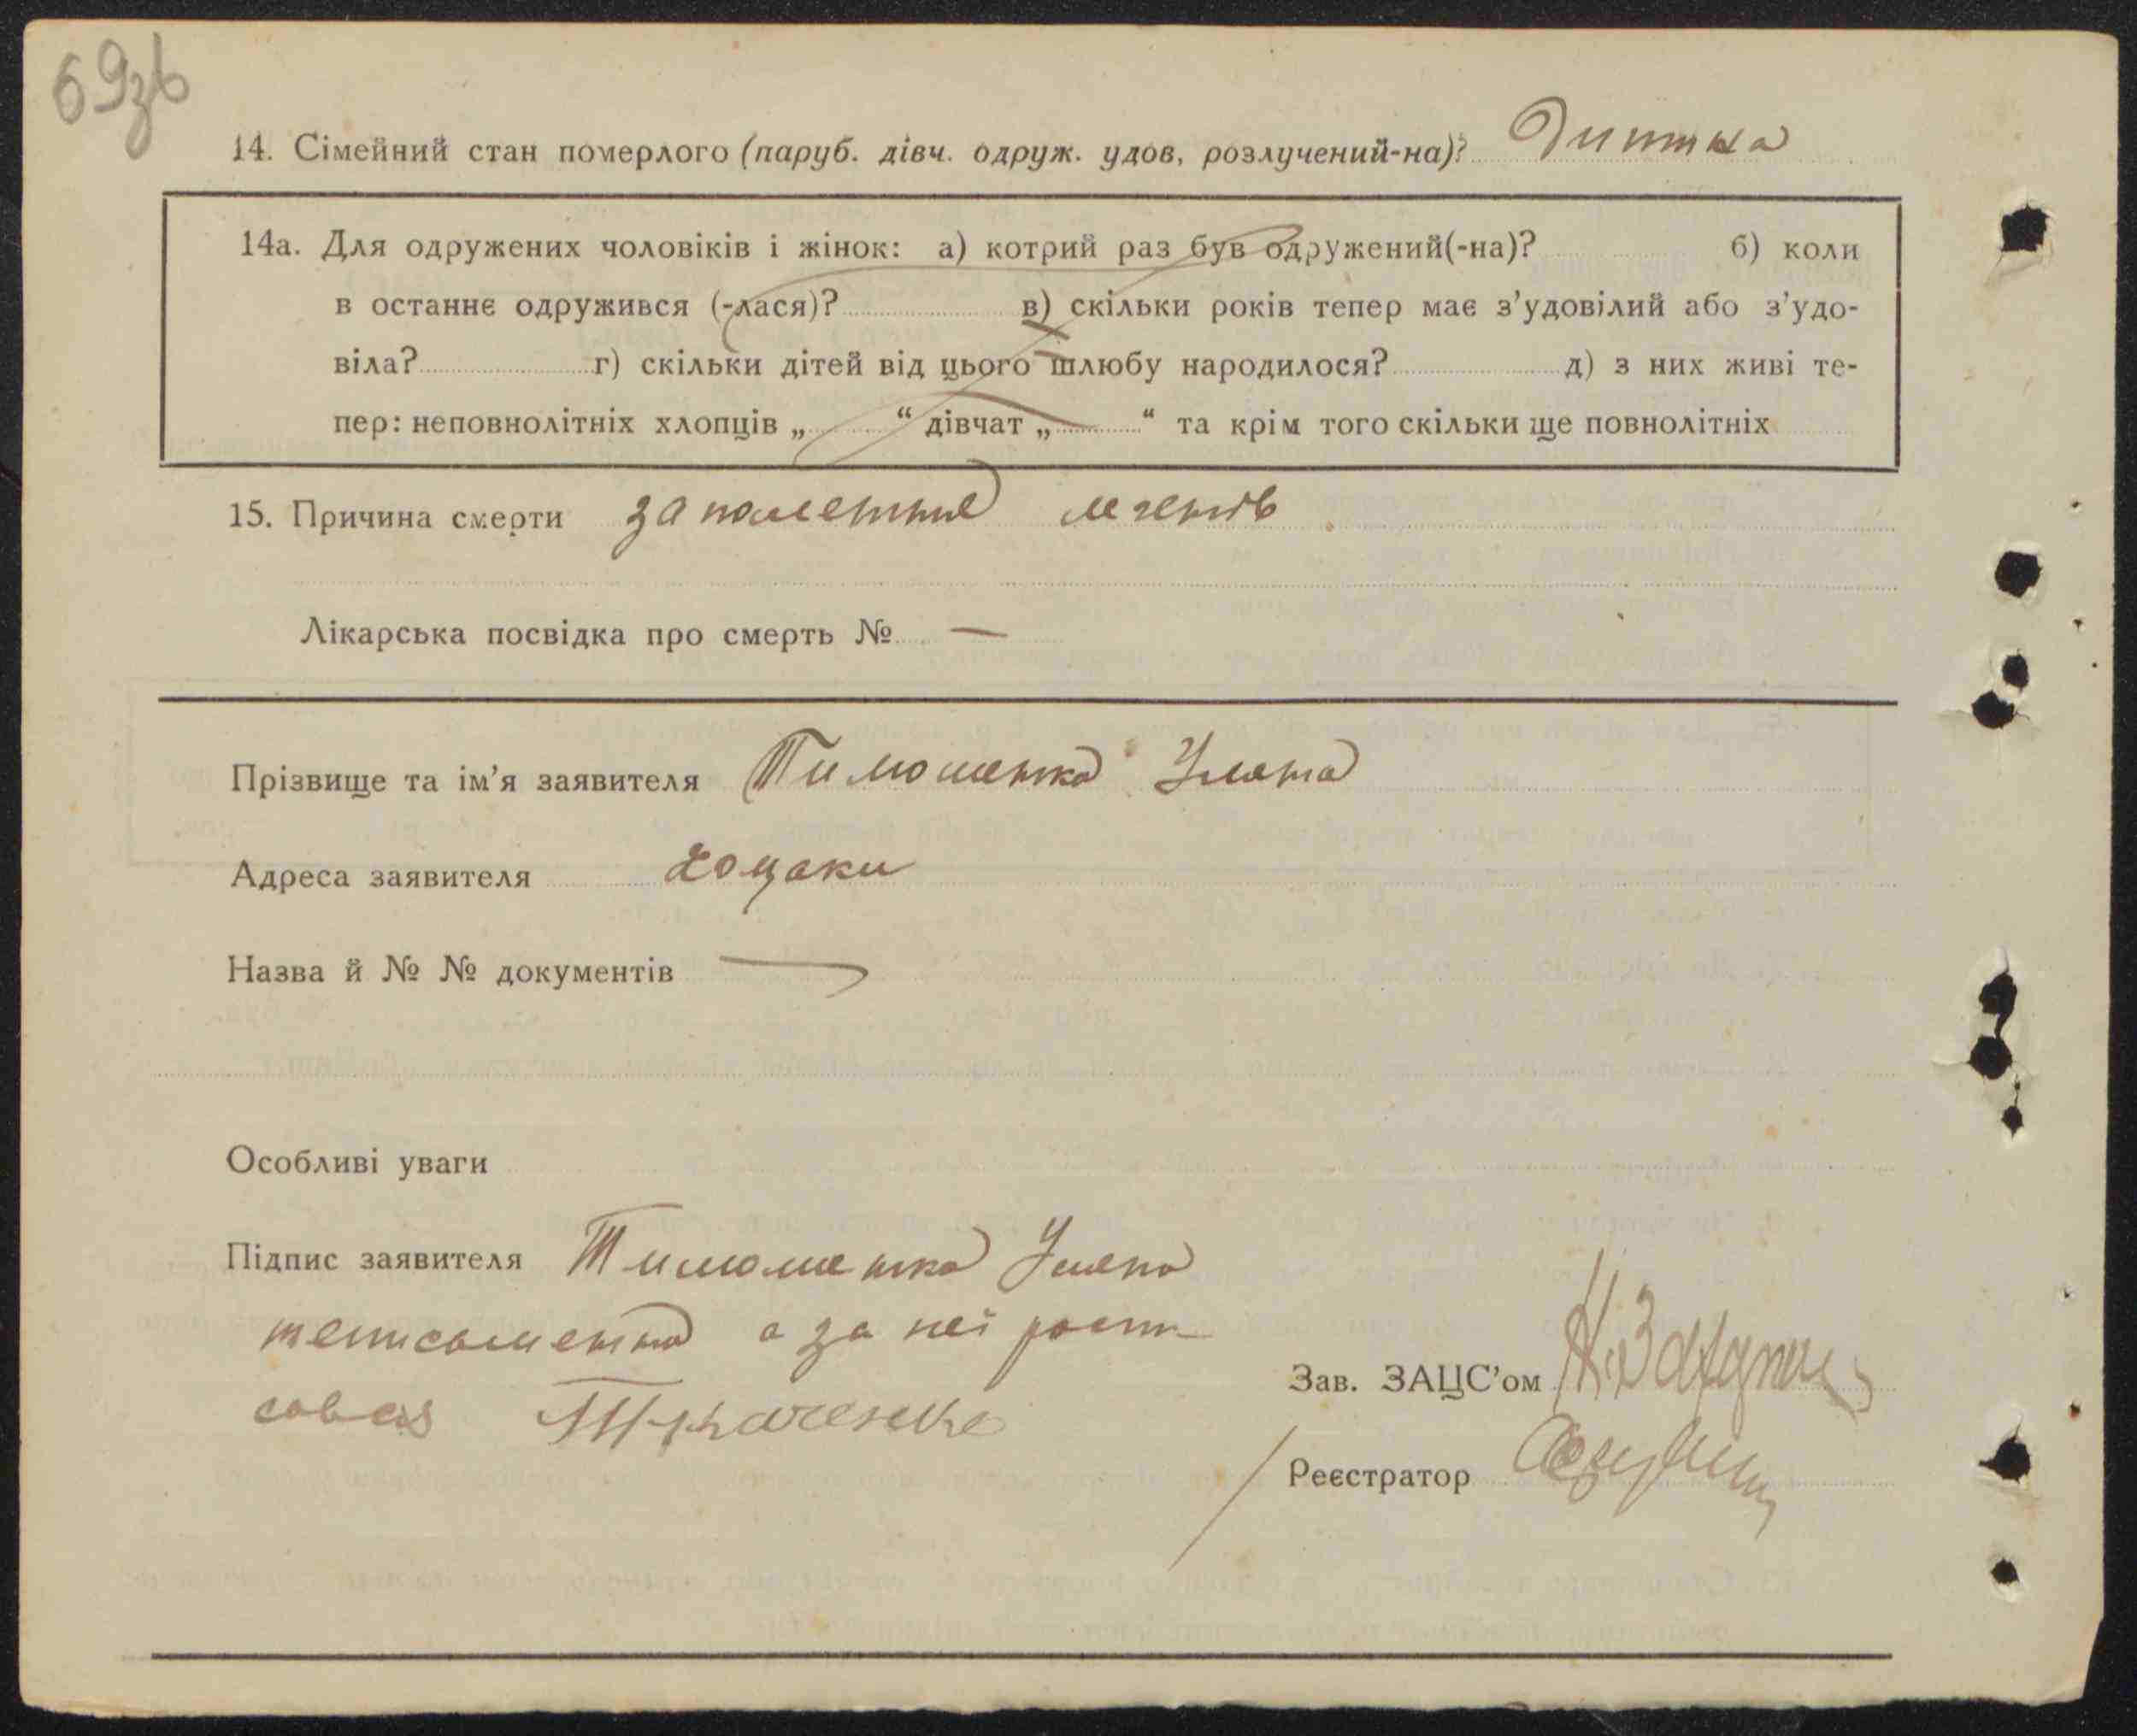 69зв
14. Сімейний стан померлого (паруб. дівч. одруж. удов, розлучений-на)? Дитина
14а. Для одружених чоловіків і жінок: а) котрий раз був одружений(-на)? б) коли
в останнє одружився (-лася)? в) скільки років тепер має з'удовілий або з'удо-
віла? г) скільки дітей від цього шлюбу народилося? д) з них живі те-
пер: неповнолітніх хлопців „ “ дівчат „ “ та крім того скільки ще повнолітніх
15. Причина смерти заполенние легенів
Лікарська посвідка про смерть № —
Прізвище та ім'я заявителя Тимошенко Уляна
Адреса заявителя Хоцаки
Назва й № № документів —
Особливі уваги
Підпис заявителя Тимошенко Уляна
неписьменна а за неї роспи
совая Ткаченко
Зав. ЗАЦС'ом
Реєстратор